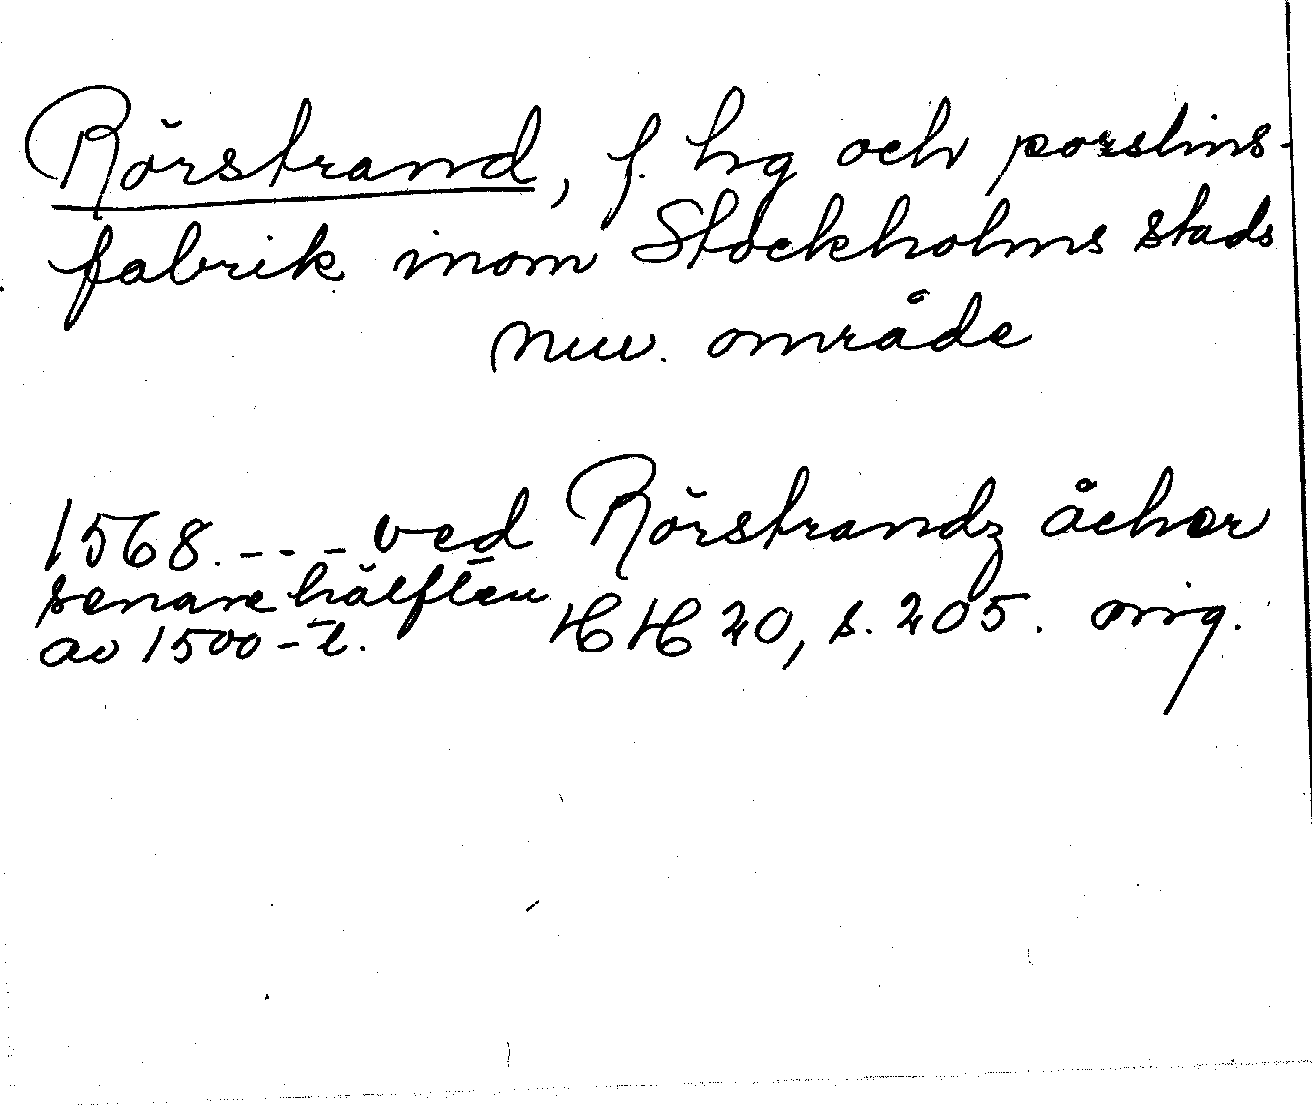 Rörstrand, f. hg och porslins-
fabrik inom Stockholms stads
nuv. område
1568. - - - ved Rörstrandz åcher
senare hälften
av 1500-t. HH 20, s. 205. orig.